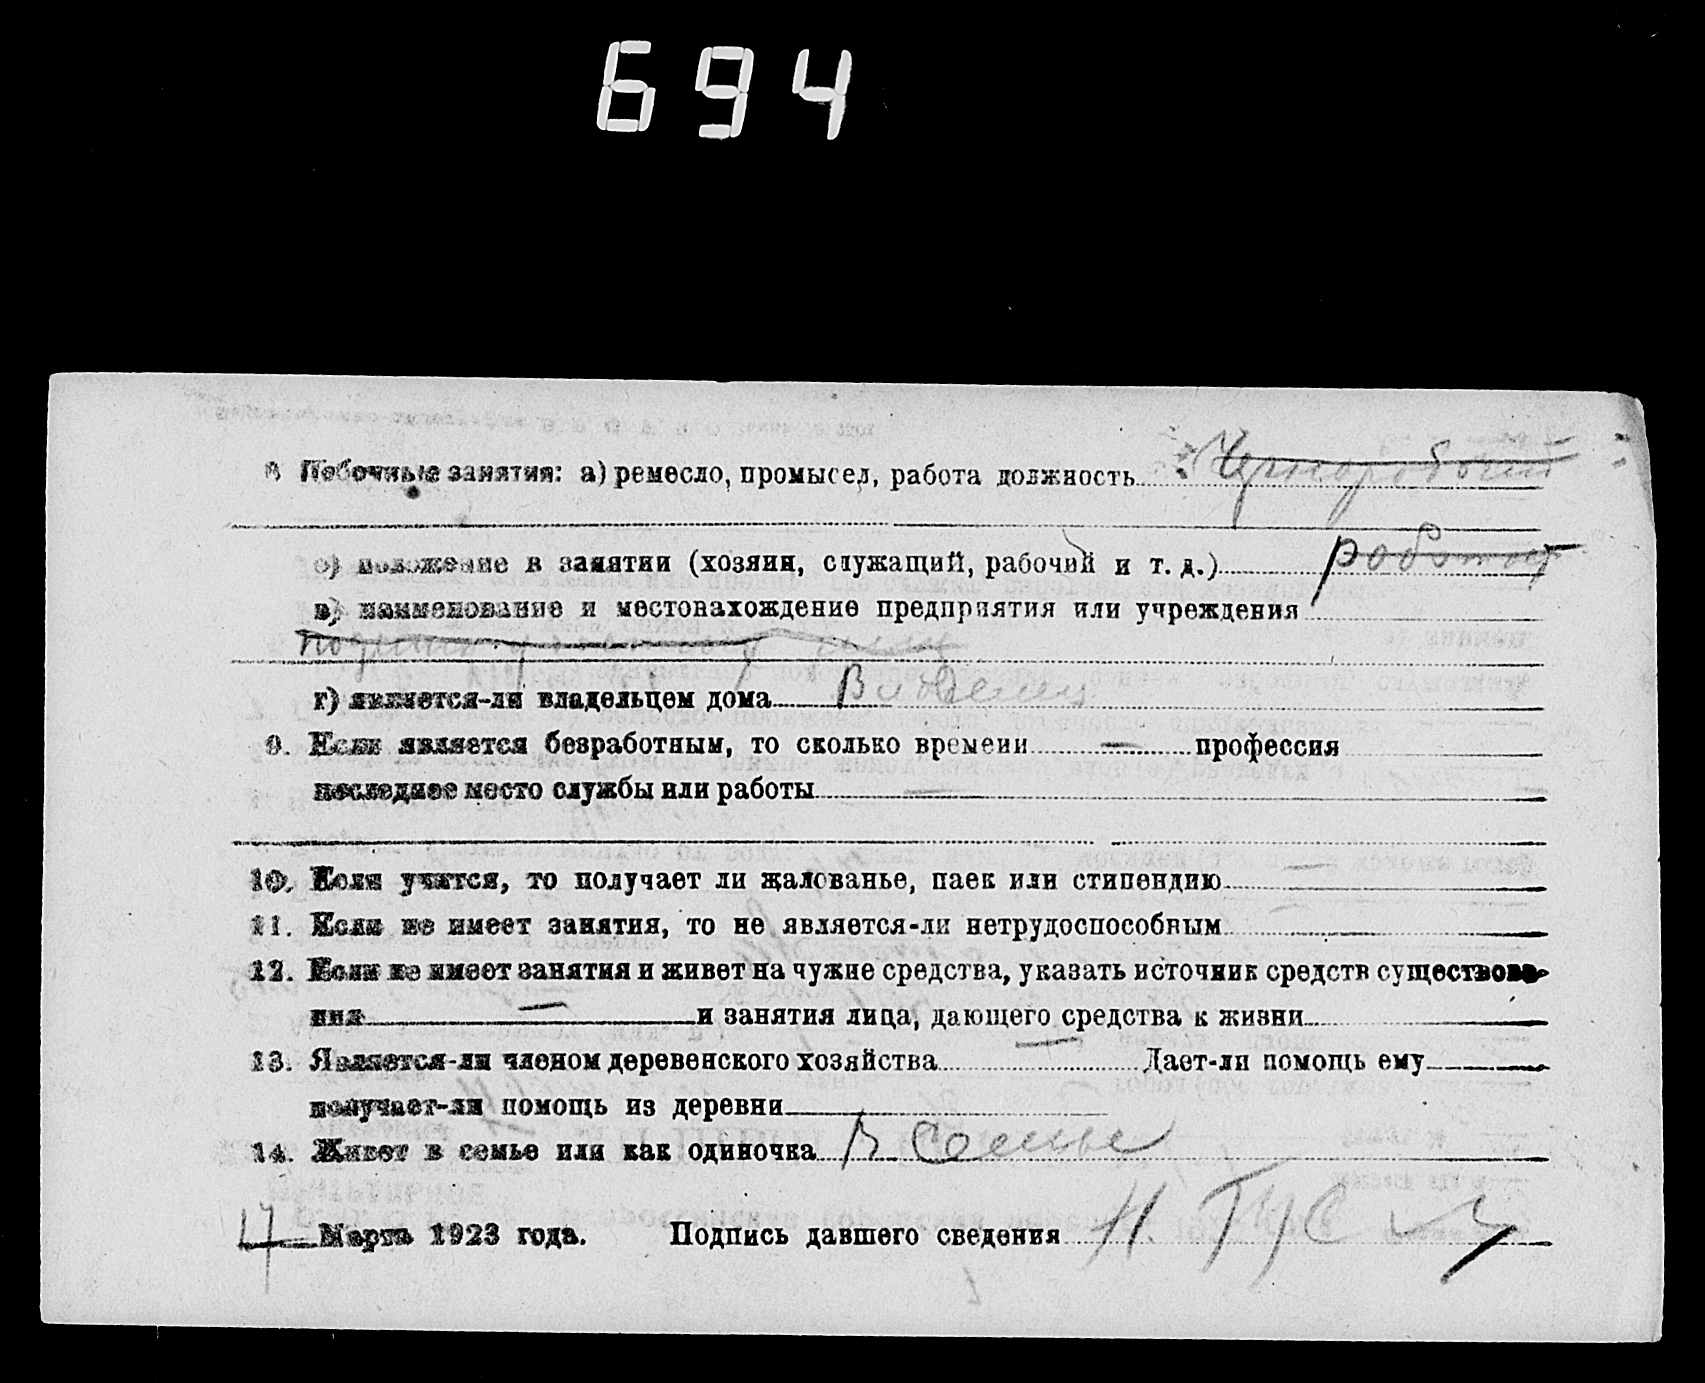 694
8 Побочные занятия: а) ремесло, промысел, работа должность Чернорабочий
б) положение в занятии (хозяин, служащий, рабочий и т. д.)
в) наименование и местонахождение предприятия или учреждения
г) является-ли владельцем дома
9. Если является безработным, то сколько времени — профессия
последнее место службы или работы —
10. Если учится, то получает ли жалованье, паек или стипендию —
11. Если не имеет занятия, то не является-ли нетрудоспособным —
12. Если не имеет занятия и живет на чужие средства, указать источник средств существова-
ния — и занятия лица, дающего средства к жизни
13. Является-ли членом деревенского хозяйства — Дает-ли помощь ему
получает-ли помощь из деревни
14. Живет в семье или как одиночка В Семье
17 Марта 1923 года. Подпись давшего сведения Н.